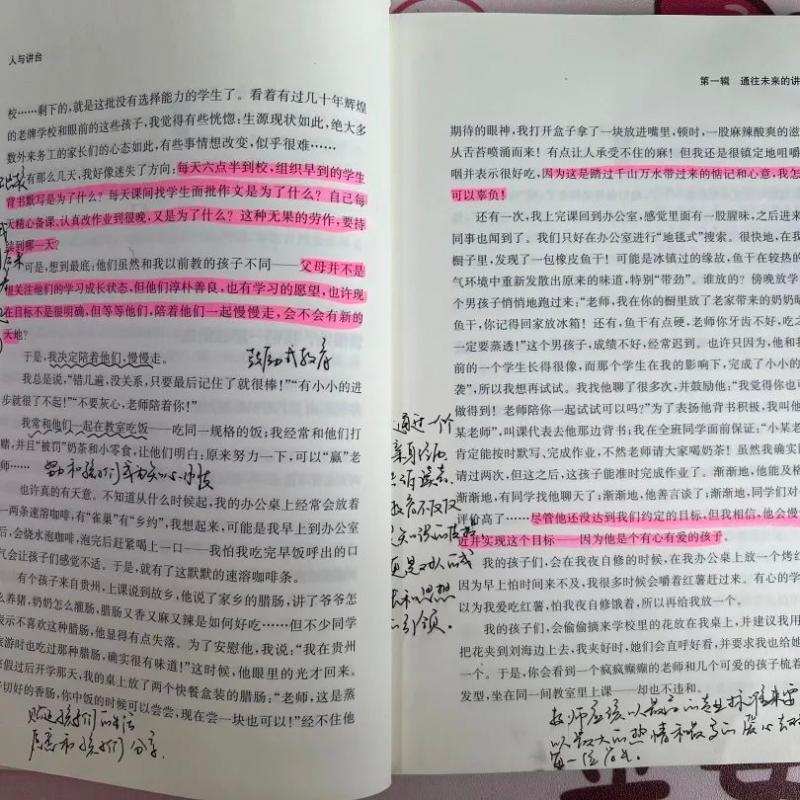 人与讲台
校……剩下的，就是这批没有选择能力的学生了。看着有过几十年辉煌
的老牌学校和眼前的这些孩子，我觉得有些恍惚：生源现状如此，绝大多
数外来务工的家长们的心态如此，有些事情想改变，似乎很难……
有那么几天，我好像迷失了方向：每天六点半到校，组织早到的学生
背书默写是为了什么？每天课间找学生面批作文是为了什么？自己每
天精心备课、认真改作业到很晚，又是为了什么？这种无果的劳作，要持
续到哪一天？
可是，想到最底：他们虽然和我以前教的孩子不同——父母并不是
很关注他们的学习成长状态，但他们淳朴善良，也有学习的愿望，也许现
在目标不是很明确，但等等他们，陪着他们一起慢慢走，会不会有新的
天地？
于是，我决定陪着他们，慢慢走。
鼓励式教育
我总是说，“错几遍，没关系，只要最后记住了就很棒！”“有小小的进
步就很了不起！”“不要灰心，老师陪着你！”
我常和他们一起在教室吃饭——吃同一规格的饭；我经常和他们打
赌，并且“被罚”奶茶和小零食，让他们明白：原来努力一下，可以“赢”老
师……
也许真的有天意。不知道从什么时候起，我的办公桌上经常会放着
一两条速溶咖啡，有“雀巢”有“乡约”，我想起来，可能是我早上到办公室
后，会烧水泡咖啡，泡完后赶紧喝上一口——我怕我吃完早饭呼出的口
气会让孩子们感觉不适。于是，就有了这默默的速溶咖啡条。
有个孩子来自贵州，上课说到故乡，他说了家乡的腊肠，讲了爷爷怎
么养猪，奶奶怎么灌肠，腊肠又香又麻又辣是如何好吃……但不少同学
表示不喜欢这种腊肠，他显得有点失落。为了安慰他，我说：“我在贵州
旅游时也吃过那种腊肠，确实很有味道！”这时候，他眼里的光才回来。
寒假过后开学那天，我的桌上放了两个快餐盒装的腊肠：“老师，这是蒸
好切好的香肠，你中饭的时候可以尝尝，现在尝一块也可以！”经不住他
贴近孩子们的生活
乐意和孩子们分享。
第一辑 通往未来的讲
期待的眼神，我打开盒子拿了一块放进嘴里，顿时，一股麻辣酸爽的滋
从舌苔喷涌而来！有点让人承受不住的麻！但我还是很镇定地咀嚼
咽并表示很好吃，因为这是踏过千山万水带过来的惦记和心意，我怎
可以辜负！
还有一次，我上完课回到办公室，感觉里面有一股腥味，之后进来
同事也闻到了。我们只好在办公室进行“地毯式”搜索。很快地，在我
橱子里，发现了一包橡皮鱼干！可能是冰镇过的缘故，鱼干在较热的
气环境中重新发散出原来的味道，特别“带劲”。谁放的？傍晚放学
个男孩子悄悄地跑过来：“老师，我在你的橱里放了老家带来的奶奶晒
鱼干，你记得回家放冰箱！还有，鱼干有点硬，老师你牙齿不好，吃之
一定要蒸透！”这个男孩子，成绩不好，经常迟到。也许只因为，他和我
前的一个学生长得很像，而那个学生在我的影响下，完成了小小的
袭”，所以我想再试试。我找他聊了很多次，并鼓励他：“我觉得你也可
做得到！老师陪你一起试试可以吗？”为了表扬他背书积极，我叫他
某老师”，叫课代表去他那边背书；我在全班同学面前保证：“小某老
肯定能按时默写、完成作业，不然老师请大家喝奶茶！虽然我确实
请过两次，但这之后，这孩子能准时完成作业了。渐渐地，他能及格
渐渐地，有同学找他聊天了；渐渐地，他善言谈了；渐渐地，同学们对
评价高了……尽管他还没达到我们约定的目标，但我相信，他会慢
近并实现这个目标——因为他是个有心有爱的孩子。
我的孩子们，会在我夜自修的时候，在我办公桌上放一个烤红
因为早上怕时间来不及，我很多时候会嚼着红薯赶过来。有心的学
以为我爱吃红薯，怕我夜自修饿着，所以再给我放一个。
我的孩子们，会偷偷摘来学校里的花放在我桌上，并建议我用
把花夹到刘海边上去，我夹好时，她们会直呼好看，并要求我也给她
一个。于是，你会看到一个疯疯癫癫的老师和几个可爱的孩子梳着
发型，坐在同一间教室里上课——却也不违和。
通过一个
教育不仅仅
更是对人的成
长和思想
的引领。